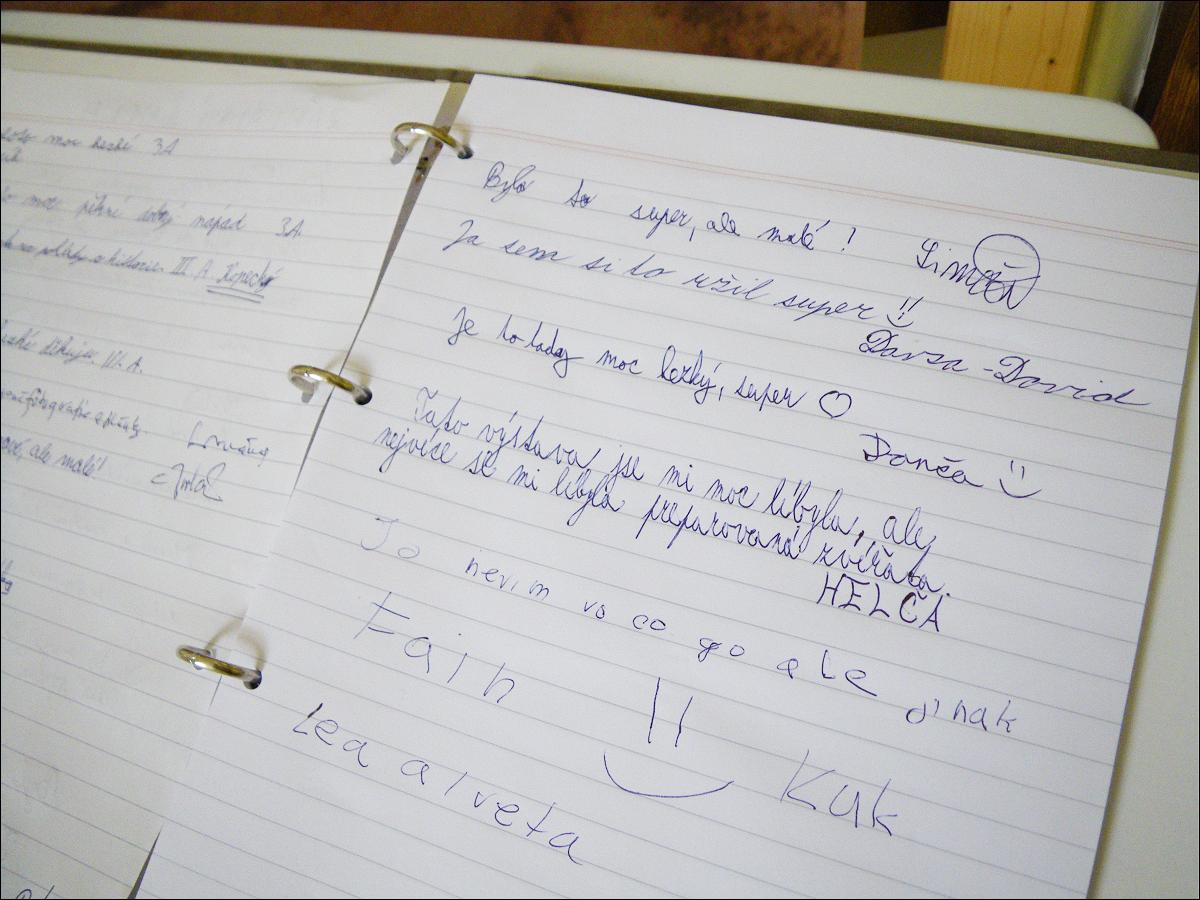 moc hezké 3A
moc pěkné dobrý nápad 3A.
a historie. III. A.
děkuju. III. A.
ale malé!
Bylo to super, ale malé!
Šimon
Ja sem si to užil super
Davsa-David
Je to tady moc hezký, super ♡
Danča
Tato výstava jse mi moc líbyla, ale
nejvíce se mi líbyla preparovaná zvířata.
HELČA
Jo nevim vo co go ale jinak
Fajn
Kuk
Lea a Iveta